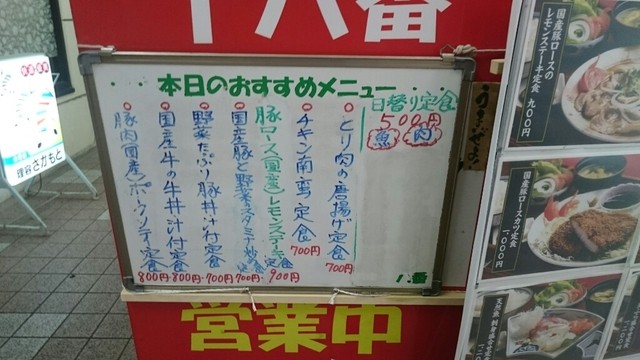 十八番
本日のおすすめメニュー
日替り定食
500円
魚 肉
とり肉の唐揚げ定食
700円
チキン南蛮定食
700円
豚ロース(国産)レモンステーキ定食
900円
国産豚と野菜スタミナ炒め定食
700円
野菜たっぷり豚丼汁付定食
700円
国産牛の牛丼汁付定食
800円
豚肉(国産)ポークソティ定食
800円
八番
営業中
理容さかもと
国産豚ロースの
レモンステーキ定食
九〇〇円
国産豚ロースカツ定食
一、〇〇〇円
天然魚 刺身盛合せ定食